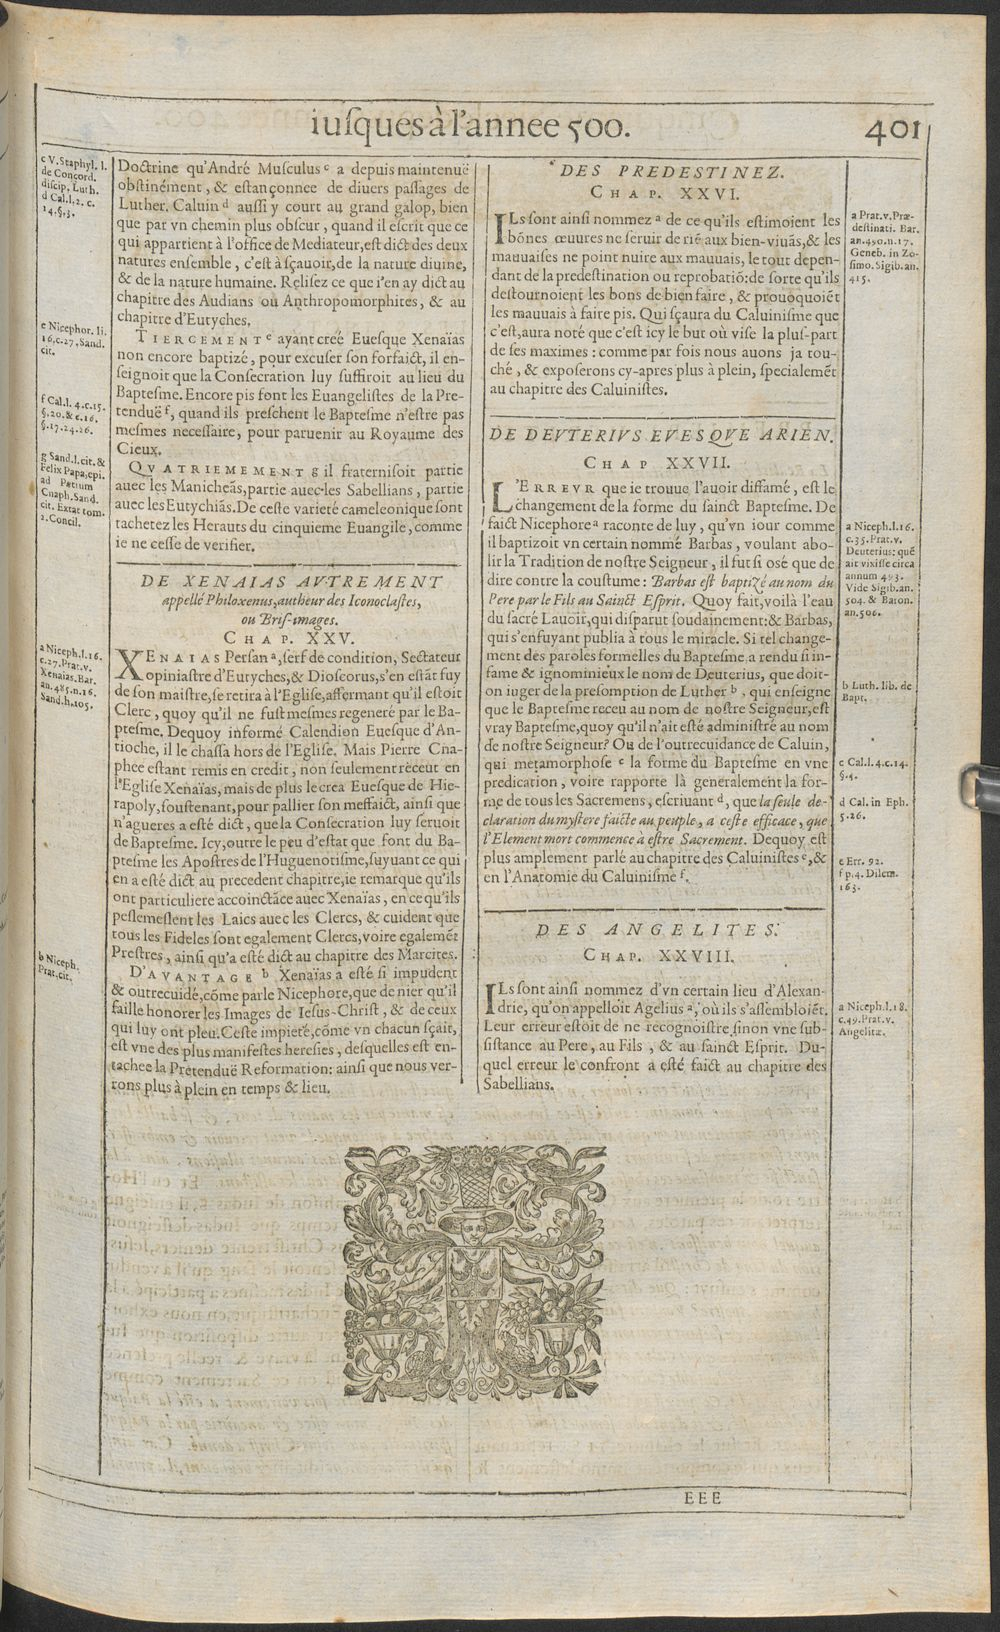 iuſques à l'annee 500.
401
c V. Staphyl. l.
de Concord.
diſcip. Luth.
d Cal. l. 2. c.
14. §. 3.
Doctrine qu'André Muſculus c a depuis maintenuë
obſtinément, & eſtançonnee de diuers paſſages de
Luther. Caluin d auſſi y court au grand galop, bien
que par vn chemin plus obſcur, quand il eſcrit que ce
qui appartient à l'office de Mediateur, eſt dict des deux
natures enſemble, c'eſt à ſçauoir, de la nature diuine,
& de la nature humaine. Reliſez ce que i'en ay dict au
chapitre des Audians ou Anthropomorphites, & au
chapitre d'Eutyches.
e Nicephor. li.
16. c. 27. Sand.
cit.
TIERCEMENT e ayant creé Eueſque Xenaïas
non encore baptizé, pour excuſer ſon forfaict, il en-
ſeignoit que la Conſecration luy ſuffiroit au lieu du
Bapteſme. Encore pis font les Euangeliſtes de la Pre-
tenduë f, quand ils preſchent le Bapteſme n'eſtre pas
meſmes neceſſaire, pour paruenir au Royaume des
Cieux.
f Cal. l. 4. c. 15.
§. 20. & c. 16.
§. 17. 24. 26.
QVATRIEMEMENT g il fraterniſoit partie
auec les Manicheãs, partie auec les Sabellians, partie
auec les Eutychiãs. De ceſte varieté cameleonique ſont
tachetez les Herauts du cinquieme Euangile, comme
ie ne ceſſe de verifier.
g Sand. l. cit. &
Felix Papa, epi.
ad Petrum
Cnaph. Sand.
cit. Extat tom.
2. Concil.
DE XENAIAS AVTREMENT
appellé Philoxenus, autheur des Iconoclaſtes,
ou Briſ-images.
CHAP. XXV.
a Niceph. l. 16.
c. 27. Prat. v.
Xenaias. Bar.
an. 485. n. 16.
Sand. h. 105.
XENAIAS Perſan a, ſerf de condition, Sectateur
opiniaſtre d'Eutyches, & Dioſcorus, s'en eſtãt fuy
de ſon maiſtre, ſe retira à l'Egliſe, affermant qu'il eſtoit
Clerc, quoy qu'il ne fuſt meſmes regeneré par le Ba-
pteſme. Dequoy informé Calendion Eueſque d'An-
tioche, il le chaſſa hors de l'Egliſe. Mais Pierre Cna-
phee eſtant remis en credit, non ſeulement receut en
l'Egliſe Xenaïas, mais de plus le crea Eueſque de Hie-
rapoly, ſouſtenant, pour pallier ſon meſfaict, ainſi que
n'agueres a eſté dict, que la Conſecration luy ſeruoit
de Bapteſme. Icy, outre le peu d'eſtat que font du Ba-
pteſme les Apoſtres de l'Huguenotiſme, ſuyuant ce qui
en a eſté dict au precedent chapitre, ie remarque qu'ils
ont particuliere accoinctãce auec Xenaïas, en ce qu'ils
peſlemeſlent les Laics auec les Clercs, & cuident que
tous les Fideles ſont egalement Clercs, voire egalemẽt
Preſtres, ainſi qu'a eſté dict au chapitre des Marcites.
b Niceph.
Prat. cit.
D'AVANTAGE b Xenaïas a eſté ſi impudent
& outrecuidé, cõme parle Nicephore, que de nier qu'il
faille honorer les Images de Ieſus-Chriſt, & de ceux
qui luy ont pleu. Ceſte impieté, cõme vn chacun ſçait,
eſt vne des plus manifeſtes hereſies, deſquelles eſt en-
tachee la Pretenduë Reformation: ainſi que nous ver-
rons plus à plein en temps & lieu.
DES PREDESTINEZ.
CHAP. XXVI.
ILs ſont ainſi nommez a de ce qu'ils eſtimoient les
bõnes œuures ne ſeruir de riẽ aux bien-viuãs, & les
mauuaiſes ne point nuire aux mauuais, le tout depen-
dant de la predeſtination ou reprobatiõ: de ſorte qu'ils
deſtournoient les bons de bien faire, & prouoquoiẽt
les mauuais à faire pis. Qui ſçaura du Caluiniſme que
c'eſt, aura noté que c'eſt icy le but où viſe la pluſ-part
de ſes maximes: comme par fois nous auons ja tou-
ché, & expoſerons cy-apres plus à plein, ſpecialemẽt
au chapitre des Caluiniſtes.
a Prat. v. Præ-
deſtinati. Bar.
an. 490. n. 17.
Geneb. in Zo-
ſimo. Sigib. an.
415.
DE DEVTERIVS EVESQVE ARIEN.
CHAP XXVII.
L'ERREVR que ie trouue l'auoir diffamé, eſt le
changement de la forme du ſainct Bapteſme. De
faict Nicephore a raconte de luy, qu'vn iour comme
il baptizoit vn certain nommé Barbas, voulant abo-
lir la Tradition de noſtre Seigneur, il fut ſi osé que de
dire contre la couſtume: Barbas eſt baptizé au nom du
Pere par le Fils au Sainct Eſprit. Quoy fait, voilà l'eau
du ſacré Lauoir, qui diſparut ſoudainement: & Barbas,
qui s'enfuyant publia à tous le miracle. Si tel change-
ment des paroles formelles du Bapteſme a rendu ſi in-
fame & ignominieux le nom de Deuterius, que doit-
on iuger de la preſomption de Luther b, qui enſeigne
que le Bapteſme receu au nom de noſtre Seigneur, eſt
vray Bapteſme, quoy qu'il n'ait eſté adminiſtré au nom
de noſtre Seigneur? Ou de l'outrecuidance de Caluin,
qui metamorphoſe c la forme du Bapteſme en vne
predication, voire rapporte là generalement la for-
me de tous les Sacremens, eſcriuant d, que la ſeule de-
claration du myſtere faicte au peuple, a ceſte efficace, que
l'Element mort commence à eſtre Sacrement. Dequoy eſt
plus amplement parlé au chapitre des Caluiniſtes e, &
en l'Anatomie du Caluiniſme f.
a Niceph. l. 16.
c. 35. Prat. v.
Deuterius: quẽ
ait vixiſſe circa
annum 493.
Vide Sigib. an.
504. & Baron.
an. 506.
b Luth. lib. de
Bapt.
c Cal. l. 4. c. 14.
§. 4.
d Cal. in Eph.
5. 26.
e Err. 92.
f p. 4. Dilem.
163.
DES ANGELITES.
CHAP. XXVIII.
ILs ſont ainſi nommez d'vn certain lieu d'Alexan-
drie, qu'on appelloit Agelius a, où ils s'aſſembloiẽt.
Leur erreur eſtoit de ne recognoiſtre ſinon vne ſub-
ſiſtance au Pere, au Fils, & au ſainct Eſprit. Du-
quel erreur le confront a eſté faict au chapitre des
Sabellians.
a Niceph. l. 18.
c. 49. Prat. v.
Angelitæ.
EEE